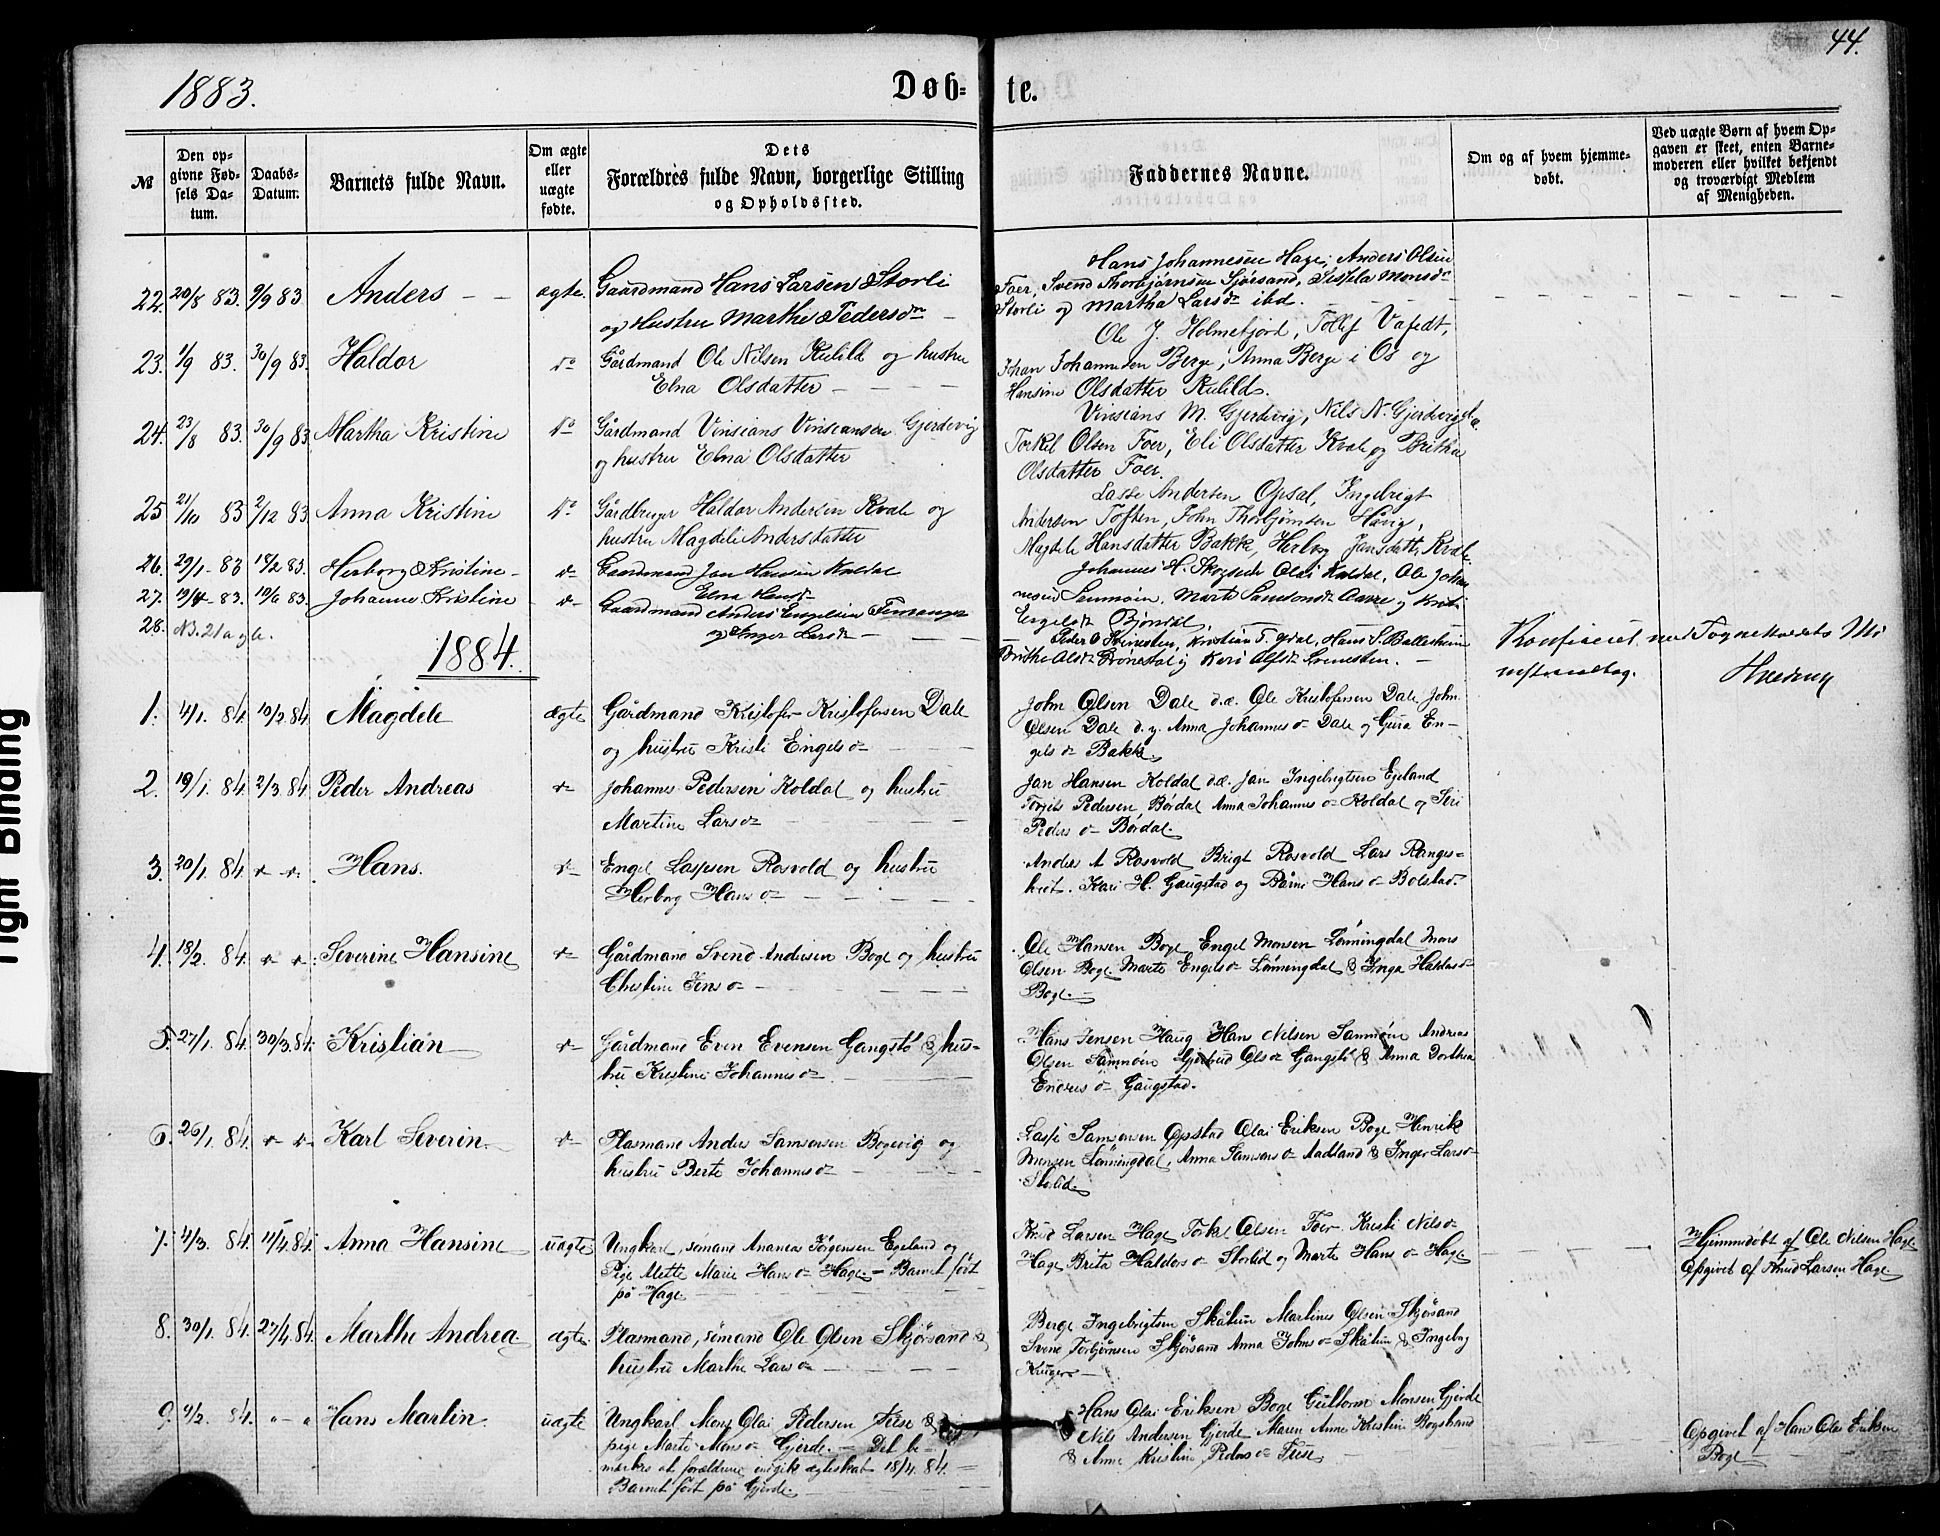 44.
1883.
Døb- te.
№
Den op-
givne Fød-
sels Da-
tum.
Daabs-
Datum.
Barnets fulde Navn.
Om ægte
eller
uægte
fødte.
Dets
Forældres fulde Navn, borgerlige Stilling
og Opholdssted.
Faddernes Navne.
Om og af hvem hjemme-
døbt.
Ved uægte Børn af hvem Op-
gaven er skeet, enten Barne-
moderen eller hvilket bekjendt
og troværdigt Medlem
af Menigheden.
22. 20/8 83. 9/9 83. Anders - - ægte. Gaardmand Hans Larsen Storli
og Hustru Marthe Pedersdr -
Hans Johannesen Hage, Anders Olsen
Foer, Svend Thorbjørnsen Sjørsand, Monsdr
Storli og Martha Larsdr ibd.
23. 1/9 83. 30/9 83. Haldor do Gårdmand Ole Nilsen Kulild og hustru
Elna Olsdatter -
Ole J. Holmefjord, Tollef Vafedt,
Johan Johannesen Berge, Anna Berge i Os og
Hansine Olsdatter Kulild.
24. 23/8 83. 30/9 83. Martha Kristine do Gårdmand Vinsians Vinsiansen Gjerdevig
og hustru Elna Olsdatter
Vinsians M. Gjerdevig, Nils N. Gjerdevig
Torkel Olsen Foer, Eli Olsdatter Kvale og Britha
Olsdatter Foer.
25 21/10 83 2/12 83. Anna Kristine do Gårdbruger Haldor Andersen Kvale og
hustru Magdeli Andersdatter
Lasse Andersen Opsal, Ingebrigt
Andersen Toften, John Thorbjørnsen Håvig,
Magdele Hansdatter Bakke, Herborg Jansdatt. Kvale
26. 29/1 83 18/2 83. Herborg Kristine - do Gaardmand Jan Hansen Koldal
Elna Hansdr
Johannes H. Skogseide Olai Koldal, Ole Johan
27. 19/4 83. 10/6 83. Johanne Kristine - do Gaardmand Anders Engelsen Tenanger
og Inger Larsdr -
nesen Sammøen, Marte Samsonsdr og
Engelsdr Bjørdal,
28. N.B. 21 a gl.
Peder O Svinesten, Kristian T. , Hans S. Balleshein
Brithe Olsdr Grønestøl og Kari Olsdr Svenesten. -
Konfereret med Sognekaldets Mi
nisterialbog.
1884.
1. 4/1. 84. 10/2. 84. Magdele ægte Gårdmand Kristofer Kristofersen Dale
og hustru Kristi Engelsdr
John Olsen Dale d.æ. Ole Kristofersen Dale, John
Olsen Dale d.y. Anna Johannesdr Dale og Gura En-
gelsdr Bakke.
2. 19/1. 84. 2/3. 84. Peder Andreas do Johannes Pedersen Koldal og hustru
Martine Larsdr
Jan Hansen Koldal d.æ. Jan Ingebrigtsen Egeland
Torgils Pedersen Børdal Anna Johannesdr Koldal og Siri
Pedersdr Børdal.
3. 20/1. 84. do do. Hans. do Engel Lassesen Rosvold og hustru
Herborg Hansdr
Anders A Rosvold Brigt Rosvold Lars Ranges-
. Kari H. Gaugstad og Barne Hansdr Bolstad.
4. 18/2. 84. do do. Severine Hansine do Gårdmand Svend Andersen Boge og hustru
Christine Jensdr
Ole Hansen Boge Engel Monsen Lønningdal Mons
Olsen Boge Marte Engelsdr Lønningdal & Inga Haldorsdr
Boge.
5. 27/1. 84. 30/3. 84. Kristian do Gårdmand Even Evensen Gangstø & hus-
tru Kristine Johannesdr
Hans Jensen Haug Hans Nilsen Sammøen Andreas
Olsen Sammøen Gjertrud Olsdr Gangstø & Anna Dorthea
Endresdr Gaugstad.
6. 26/1. 84. do do. Karl Severin. do Plasmand Anders Samsonsen Bogevig og
hustru Berte Johannesdr
Lasse Samsonsen Opstad Olai Eriksen Boge Henrik
Monsen Lønningdal, Anna Samsonsdr Aadland & Inger Larsdr
Storlid.
7. 4/3. 84. 14/4. 84. Anna Hansine uægte Ungkarl, sømand Ananias Jørgensen Egeland og
Pige Mette Marie Hansdr Hage - Barnet født
på Hage
Knud Larsen Hage Torkel Olsen Foer Kristi Nilsdr
Hage Brita Haldorsdr Storlid og Marte Hansdr Hage
Hjemmedøbt af Ole Nilsen Hage
Opgivet af Knud Larsen Hage.
8. 30/1. 84. 27/4. 84. Marthe Andrea ægte Plasmand, sømand Ole Olsen Skjørsand &
hustru Marthe Larsdr
Berge Ingebrigtsen Skåtun Martines Olsen Skjørsand
Svend Torbjørnsen Skjørsand Anna Johnsdr Skåtun & Ingeborg
Krüger
9. 9/2. 84. " " Hans Martin. uægte Ungkarl Mons Olai Pedersen Tuse &
pige Marte Monsdr Gjerde. - Det be-
mærkes at forældrene indgik ægteskab 18/4. 84. -
Barnet født på Gjerde.
Hans Olai Eriksen Boge Guttorm Monsen Gjerde
Nils Andersen Gjerde Maren Anne Kristine Bogstrand
& Anne Kristine Pedersdr Tuse
Opgivet af Hans Olai Eriksen
Boge
Tight Binding